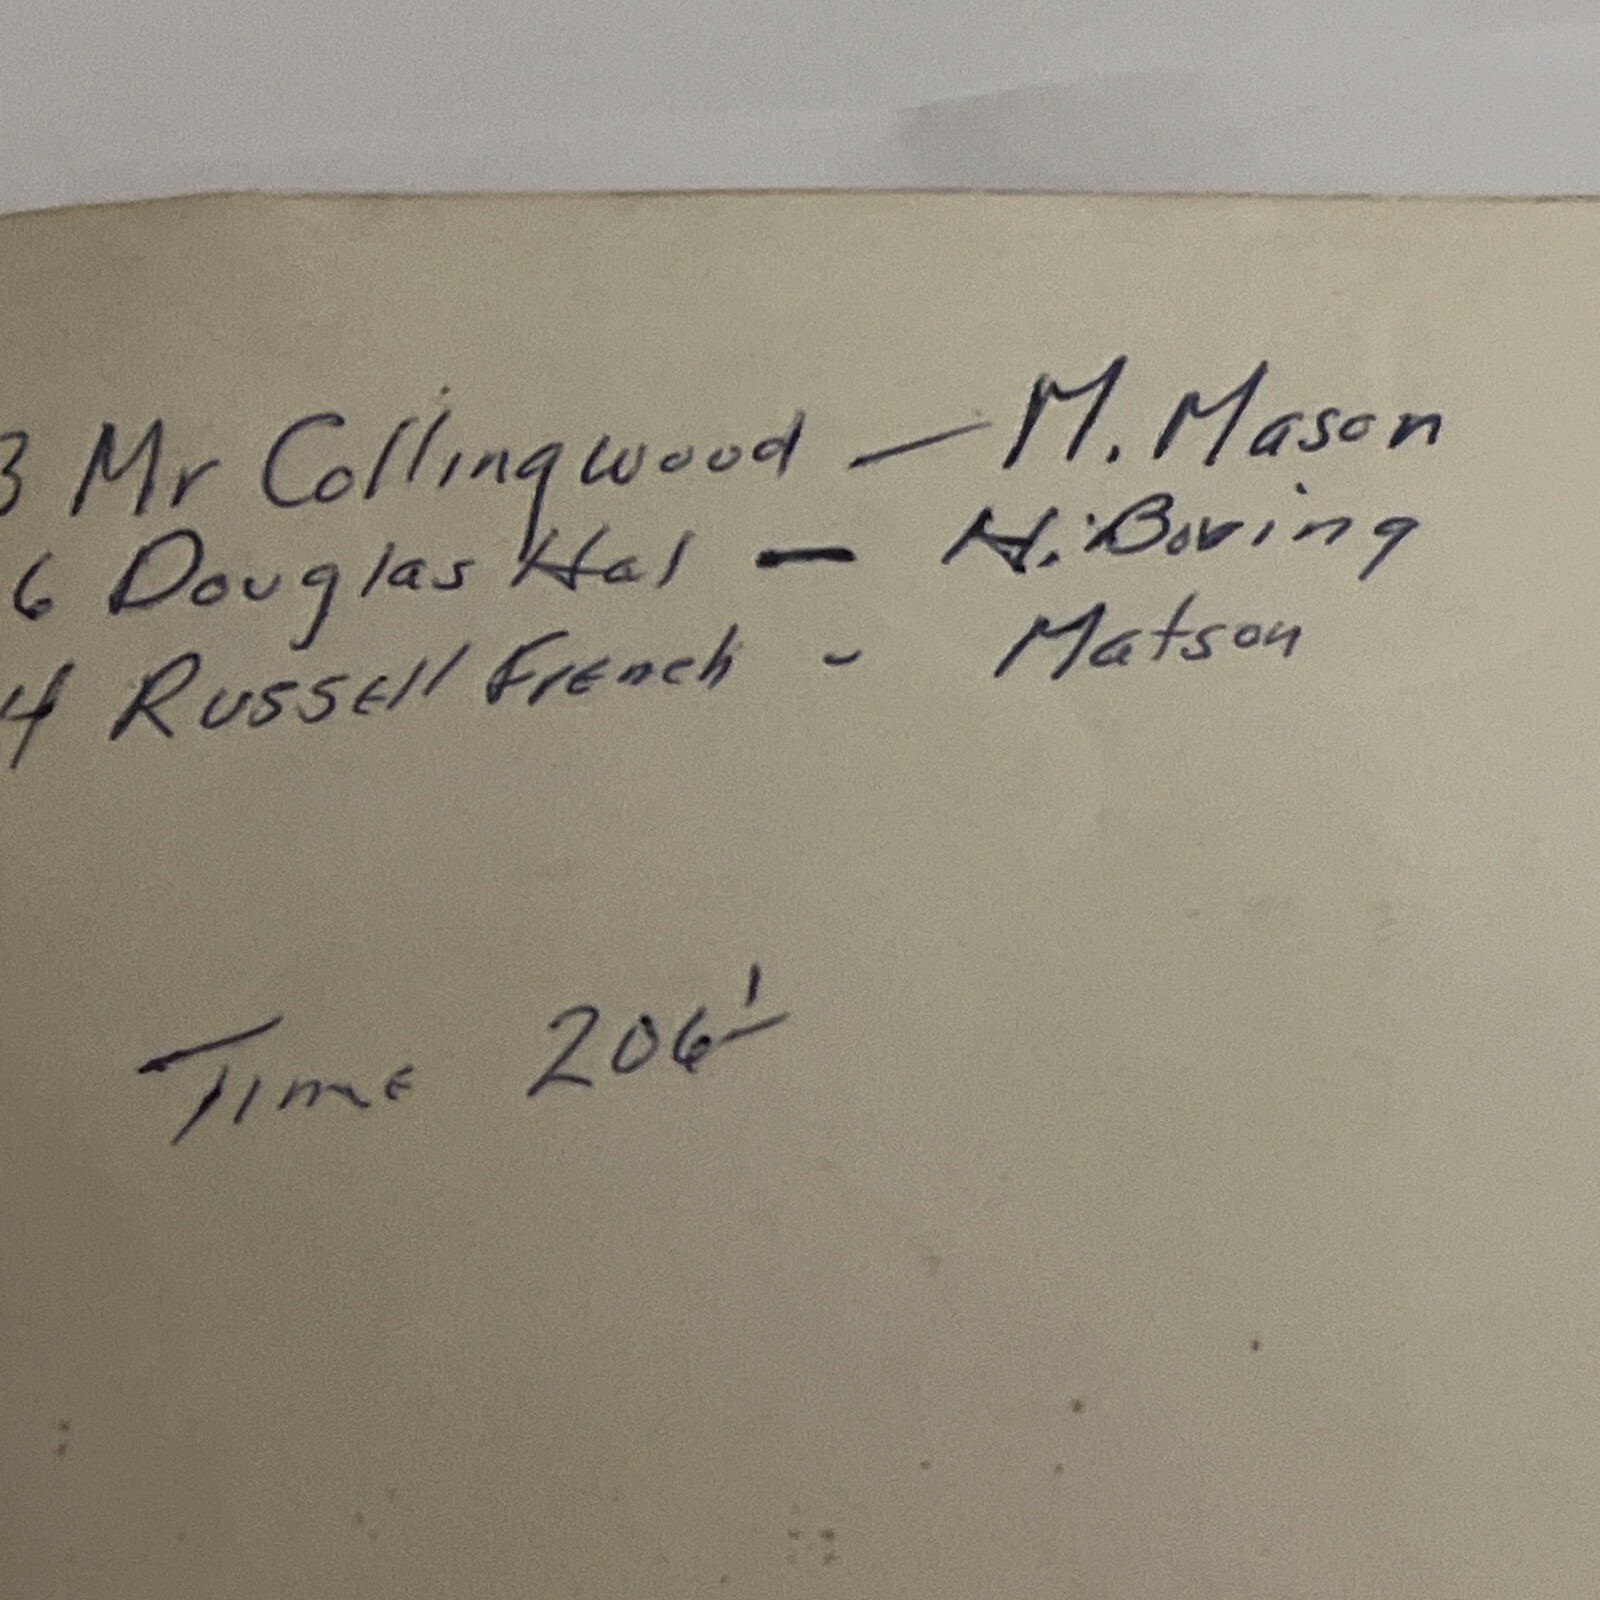 3 Mr Collingwood — M. Mason
6 Douglas Hal — H. Boring
4 Russell French - Matson
Time 206 1